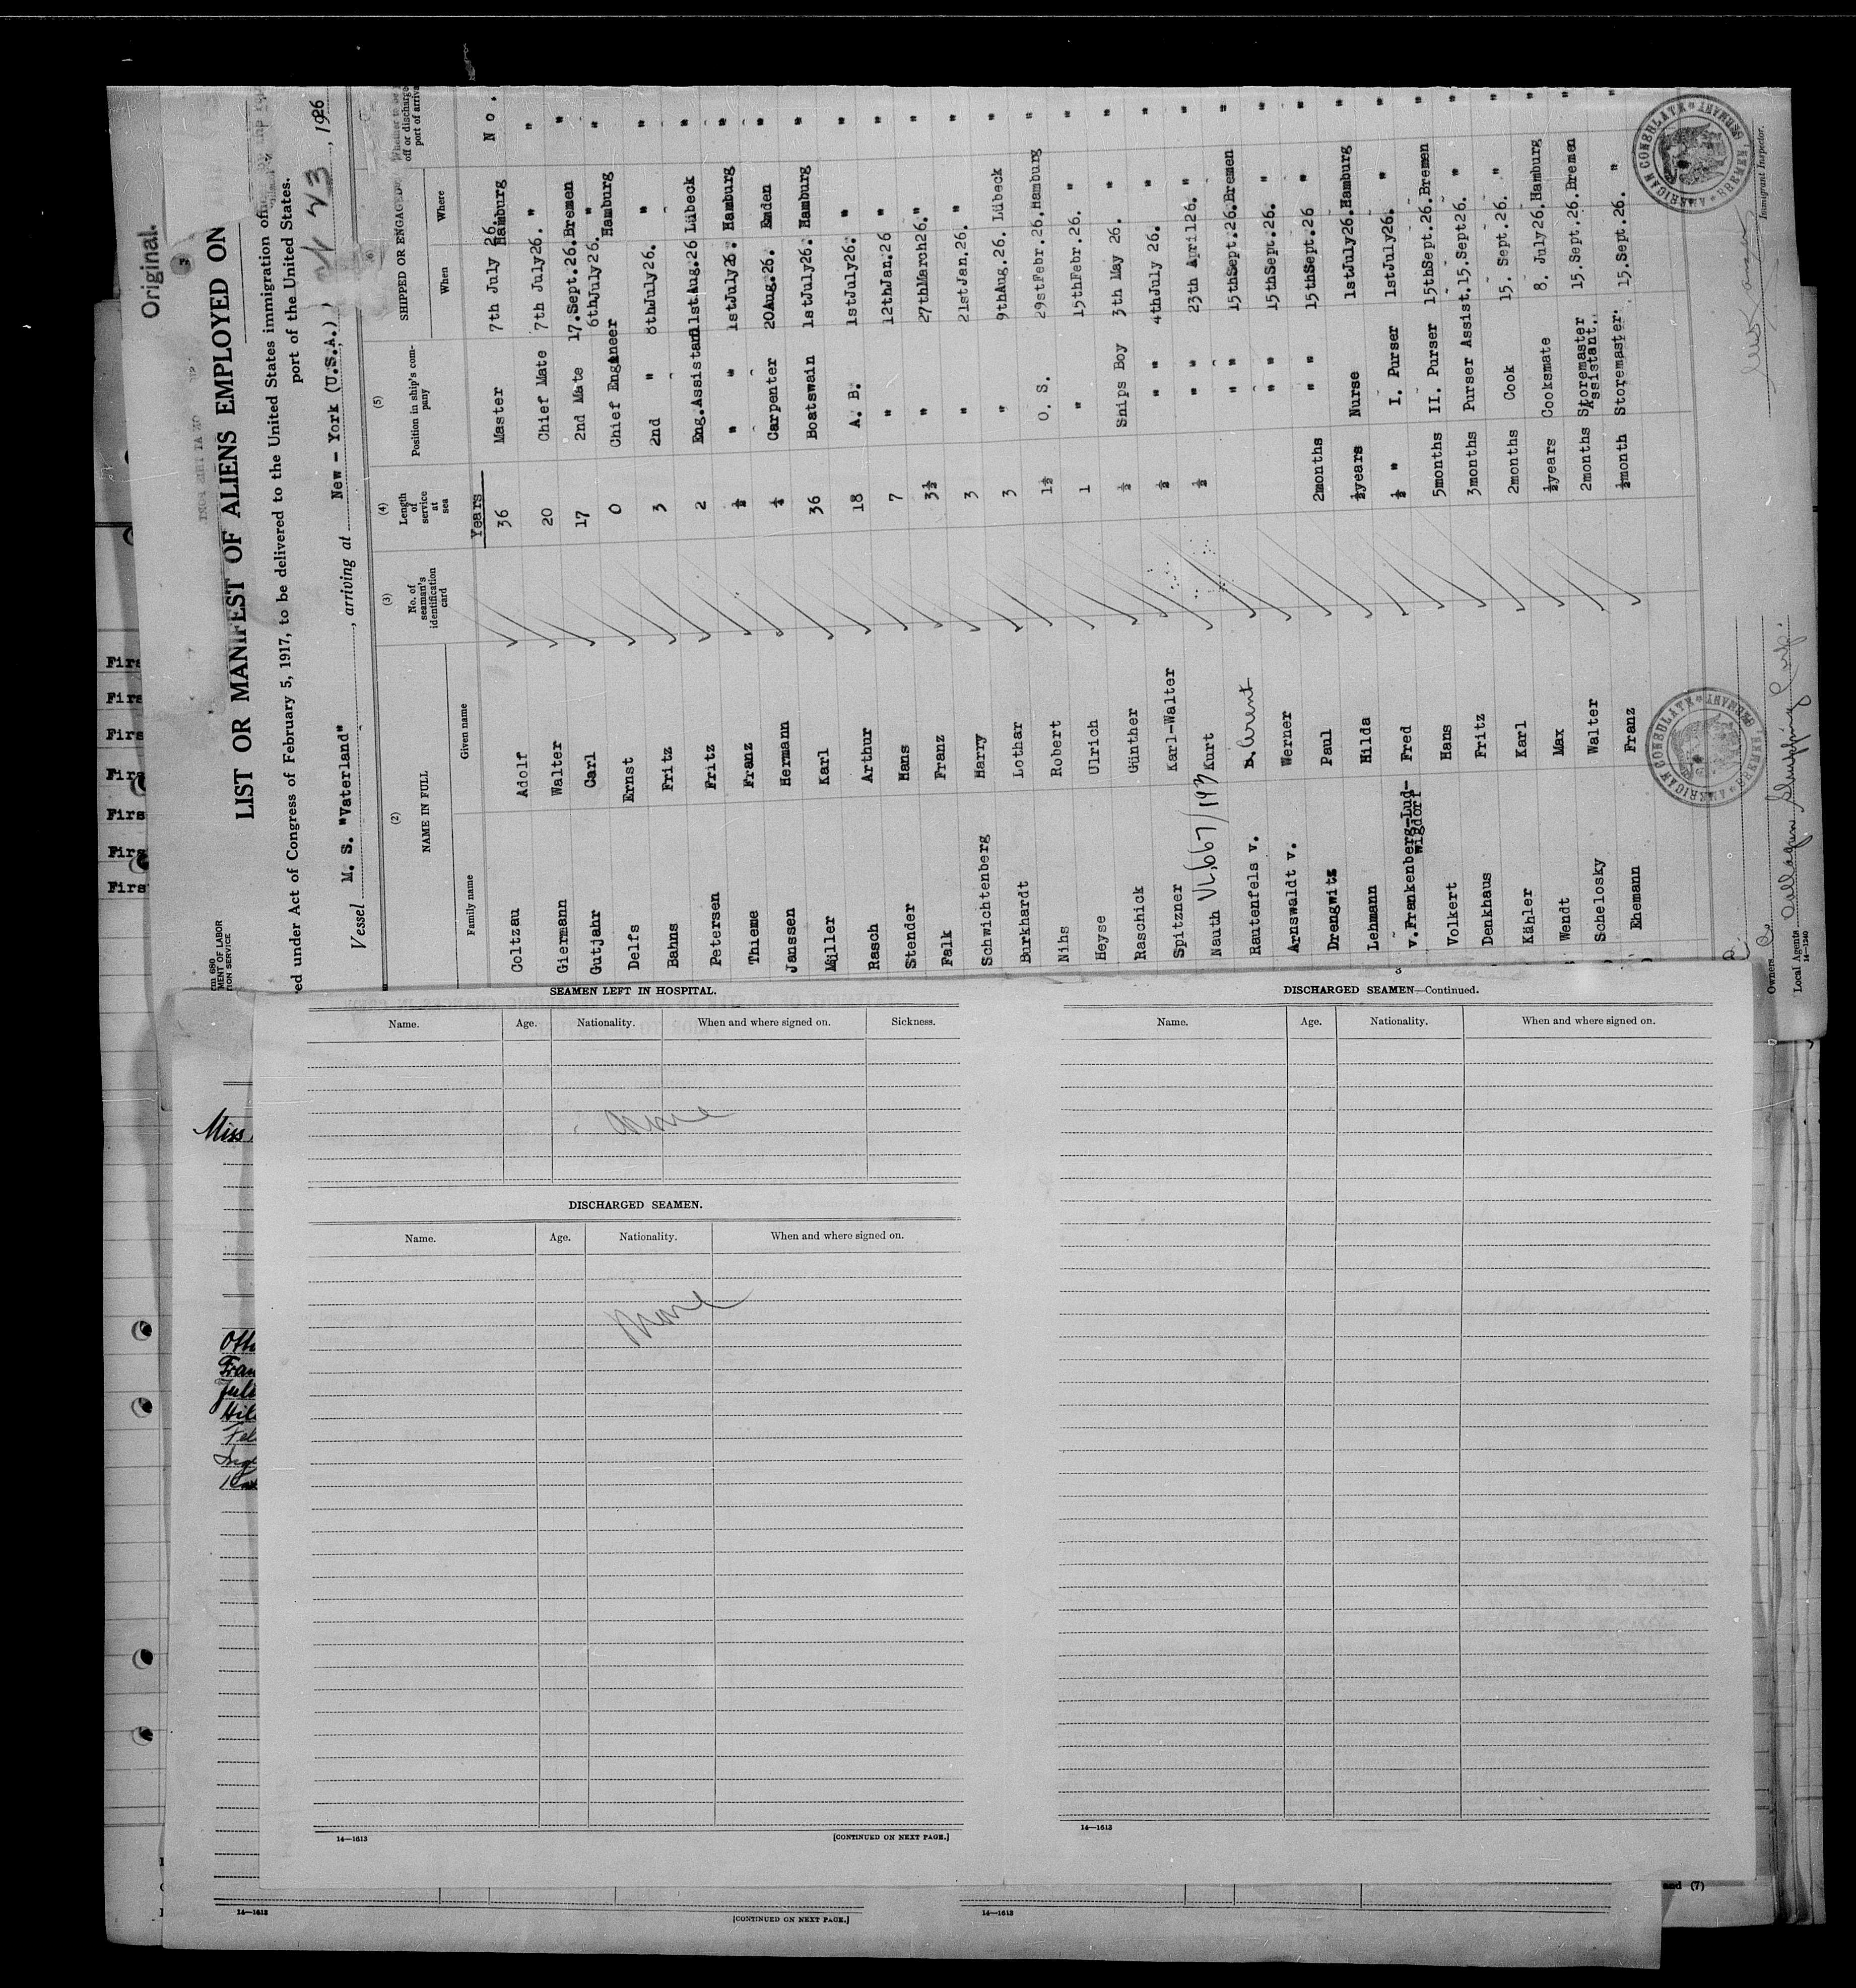 Original.
LIST OR MANIFEST OF ALIENS EMPLOYED ON
ed under Act of Congress of February 5, 1917, to be delivered to the United States immigration of
port of the United States.
Vessel M. S. "Vaterland", arriving at New - York (U.S.A.) , 1926
(2) (3) (4) (5)
NAME IN FULL No. of seaman's identification card Length of service at sea Position in ship's company SHIPPED OR ENGAGED off or discharge port of arriva
Family name Given name When Where
Years
Coltzau Adolf 36 Master 7th July 26. Hamburg No.
Giermann Walter 20 Chief Mate 7th July26. " "
Gutjahr Carl 17 2nd Mate 17.Sept.26. Bremen "
Delfs Ernst 0 Chief Engineer 6thJuly26. Hamburg "
Bahns Fritz 3 2nd " 8thJuly26. " "
Petersen Fritz 2 Eng.Assistant 1stAug.26 Lübeck "
Thieme Franz ½ " 1stJuly26. Hamburg "
Janssen Hermann ¼ Carpenter 20Aug.26. Emden "
Müller Karl 36 Boatswain 1stJuly26. Hamburg "
Rasch Arthur 18 A. B. 1stJuly26. " "
Stender Hans 7 " 12thJan.26 " "
Falk Franz 3½ " 27thMarch26. " "
Schwichtenberg Harry 3 " 21stJan.26. " "
Burkhardt Lothar 3 " 9thAug.26. Lübeck "
Nihs Robert 1½ O. S. 29stFebr.26. Hamburg "
Heyse Ulrich 1 " 15thFebr.26. " "
Raschick Günther ½ Ships Boy 3th May 26. " "
Spitzner Karl-Walter ½ " " 4thJuly 26. " "
Nauth VL,667/193 Kurt ½ " " 23th April26. " "
Rautenfels v. Arent " " 15thSept.26. Bremen "
Arnswaldt v. Werner " " 15thSept.26. " "
Drengwitz Paul 2months " " 15thSept.26 " "
Lehmann Hilda ½years Nurse 1stJuly26. Hamburg "
v.Frankenberg-Ludwigdorf Fred ½ " I. Purser 1stJuly26. " "
Volkert Hans 5months II. Purser 15thSept.26. Bremen "
Denkhaus Fritz 3months Purser Assist. 15.Sept26. " "
Kähler Karl 2months Cook 15. Sept.26. " "
Wendt Max ½years Cooksmate 8. July26. Hamburg "
Schelosky Walter 2months Storemaster Assistant. 15.Sept.26. Bremen "
Ehemann Franz ½month Storemaster. 15.Sept.26. " "
AMERICAN CONSULATE BREMEN, GERMANY
Immigrant Inspector.
AMERICAN CONSULATE BREMEN, GERMANY
Owners
Local Agents
14—1240
MENT OF LABOR
TION SERVICE
Firs
Firs
Firs
Firs
Firs
Firs
Firs
Miss
SEAMEN LEFT IN HOSPITAL.
Name. Age. Nationality. When and where signed on. Sickness.
None
DISCHARGED SEAMEN.
Name. Age. Nationality. When and where signed on.
None
14—1613 [CONTINUED ON NEXT PAGE.]
DISCHARGED SEAMEN—Continued.
Name. Age. Nationality. When and where signed on.
14—1613
and (7)
14—1613 [CONTINUED ON NEXT PAGE.] 14—1613